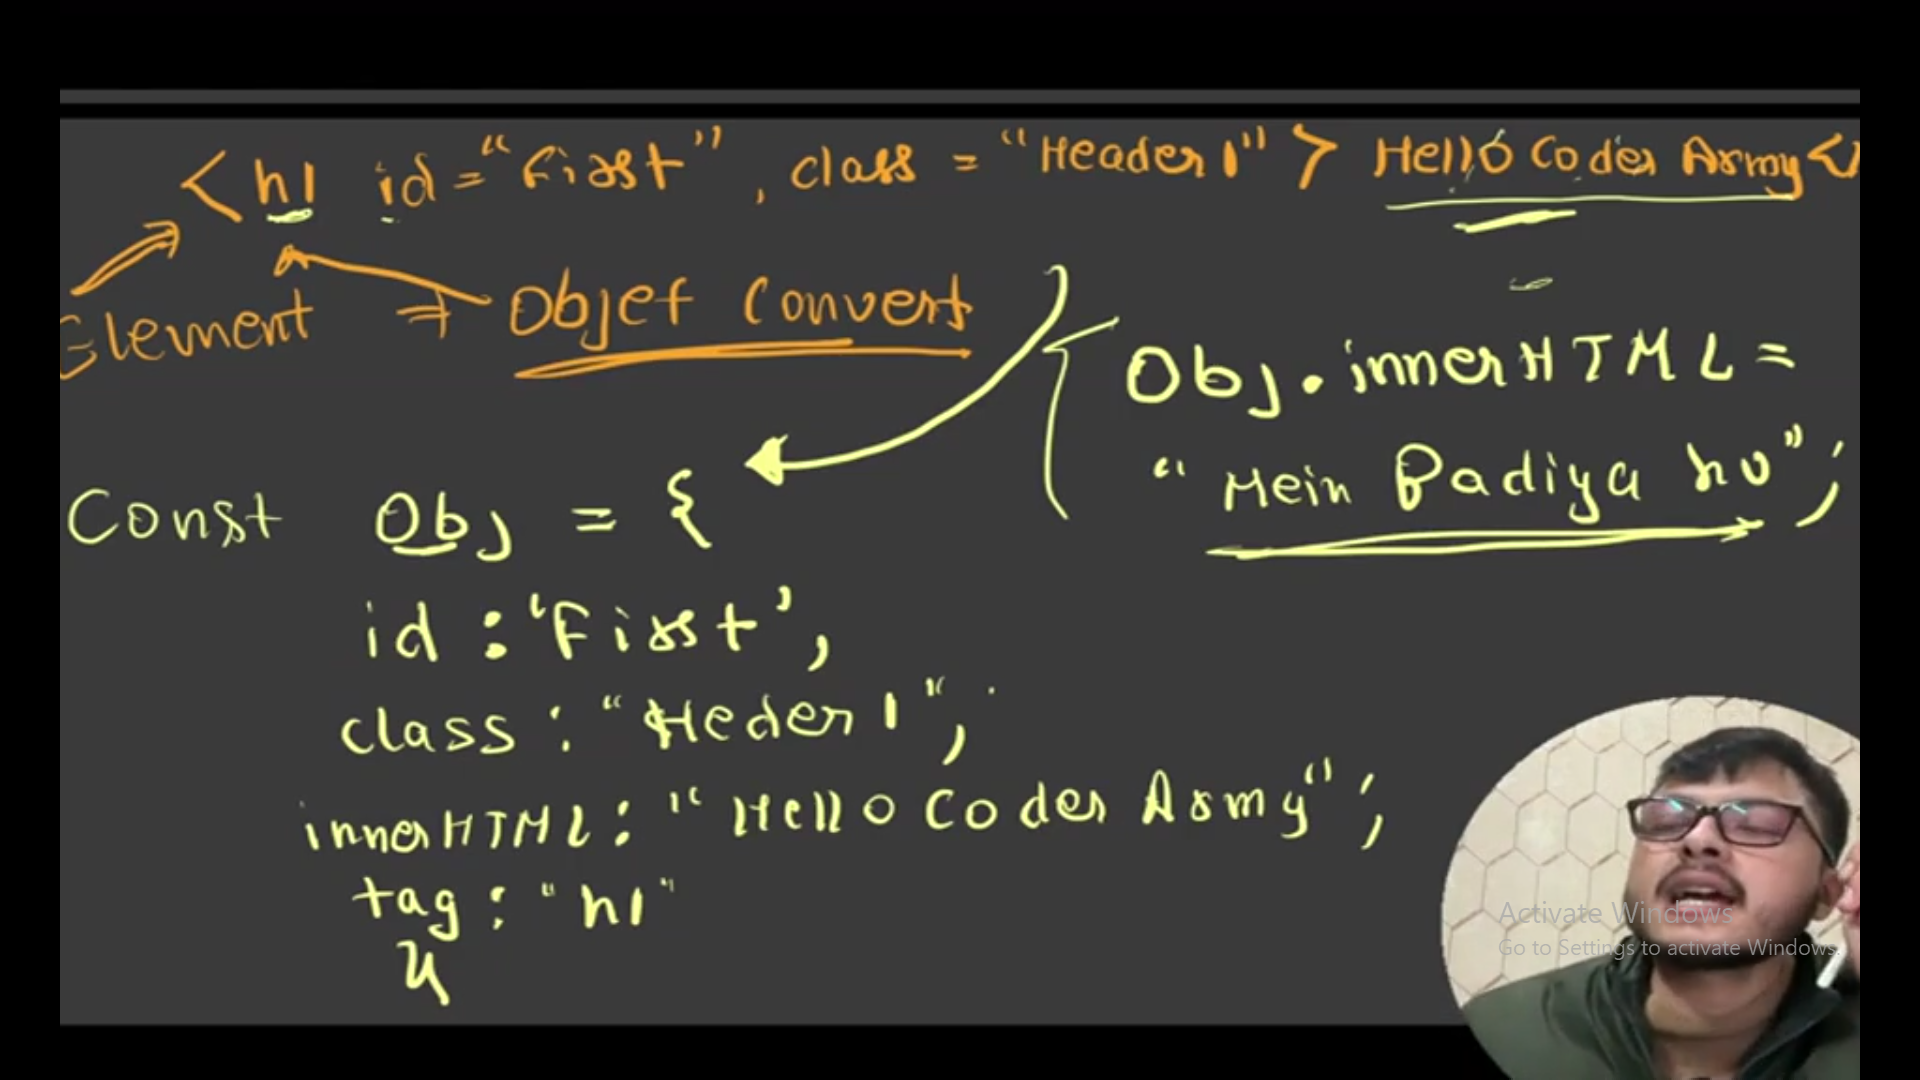 <h1 id="First", class = "Header1"> Hello Coder Army<
Element => Objet Convert
Obj.innerHTML=
"Mein Badiya hu";
Const Obj = {
id : 'First',
class : "Heder1",
innerHTML : "Hello Coder Army",
tag : "h1"
}
Activate Windows
Go to Settings to activate Windows.